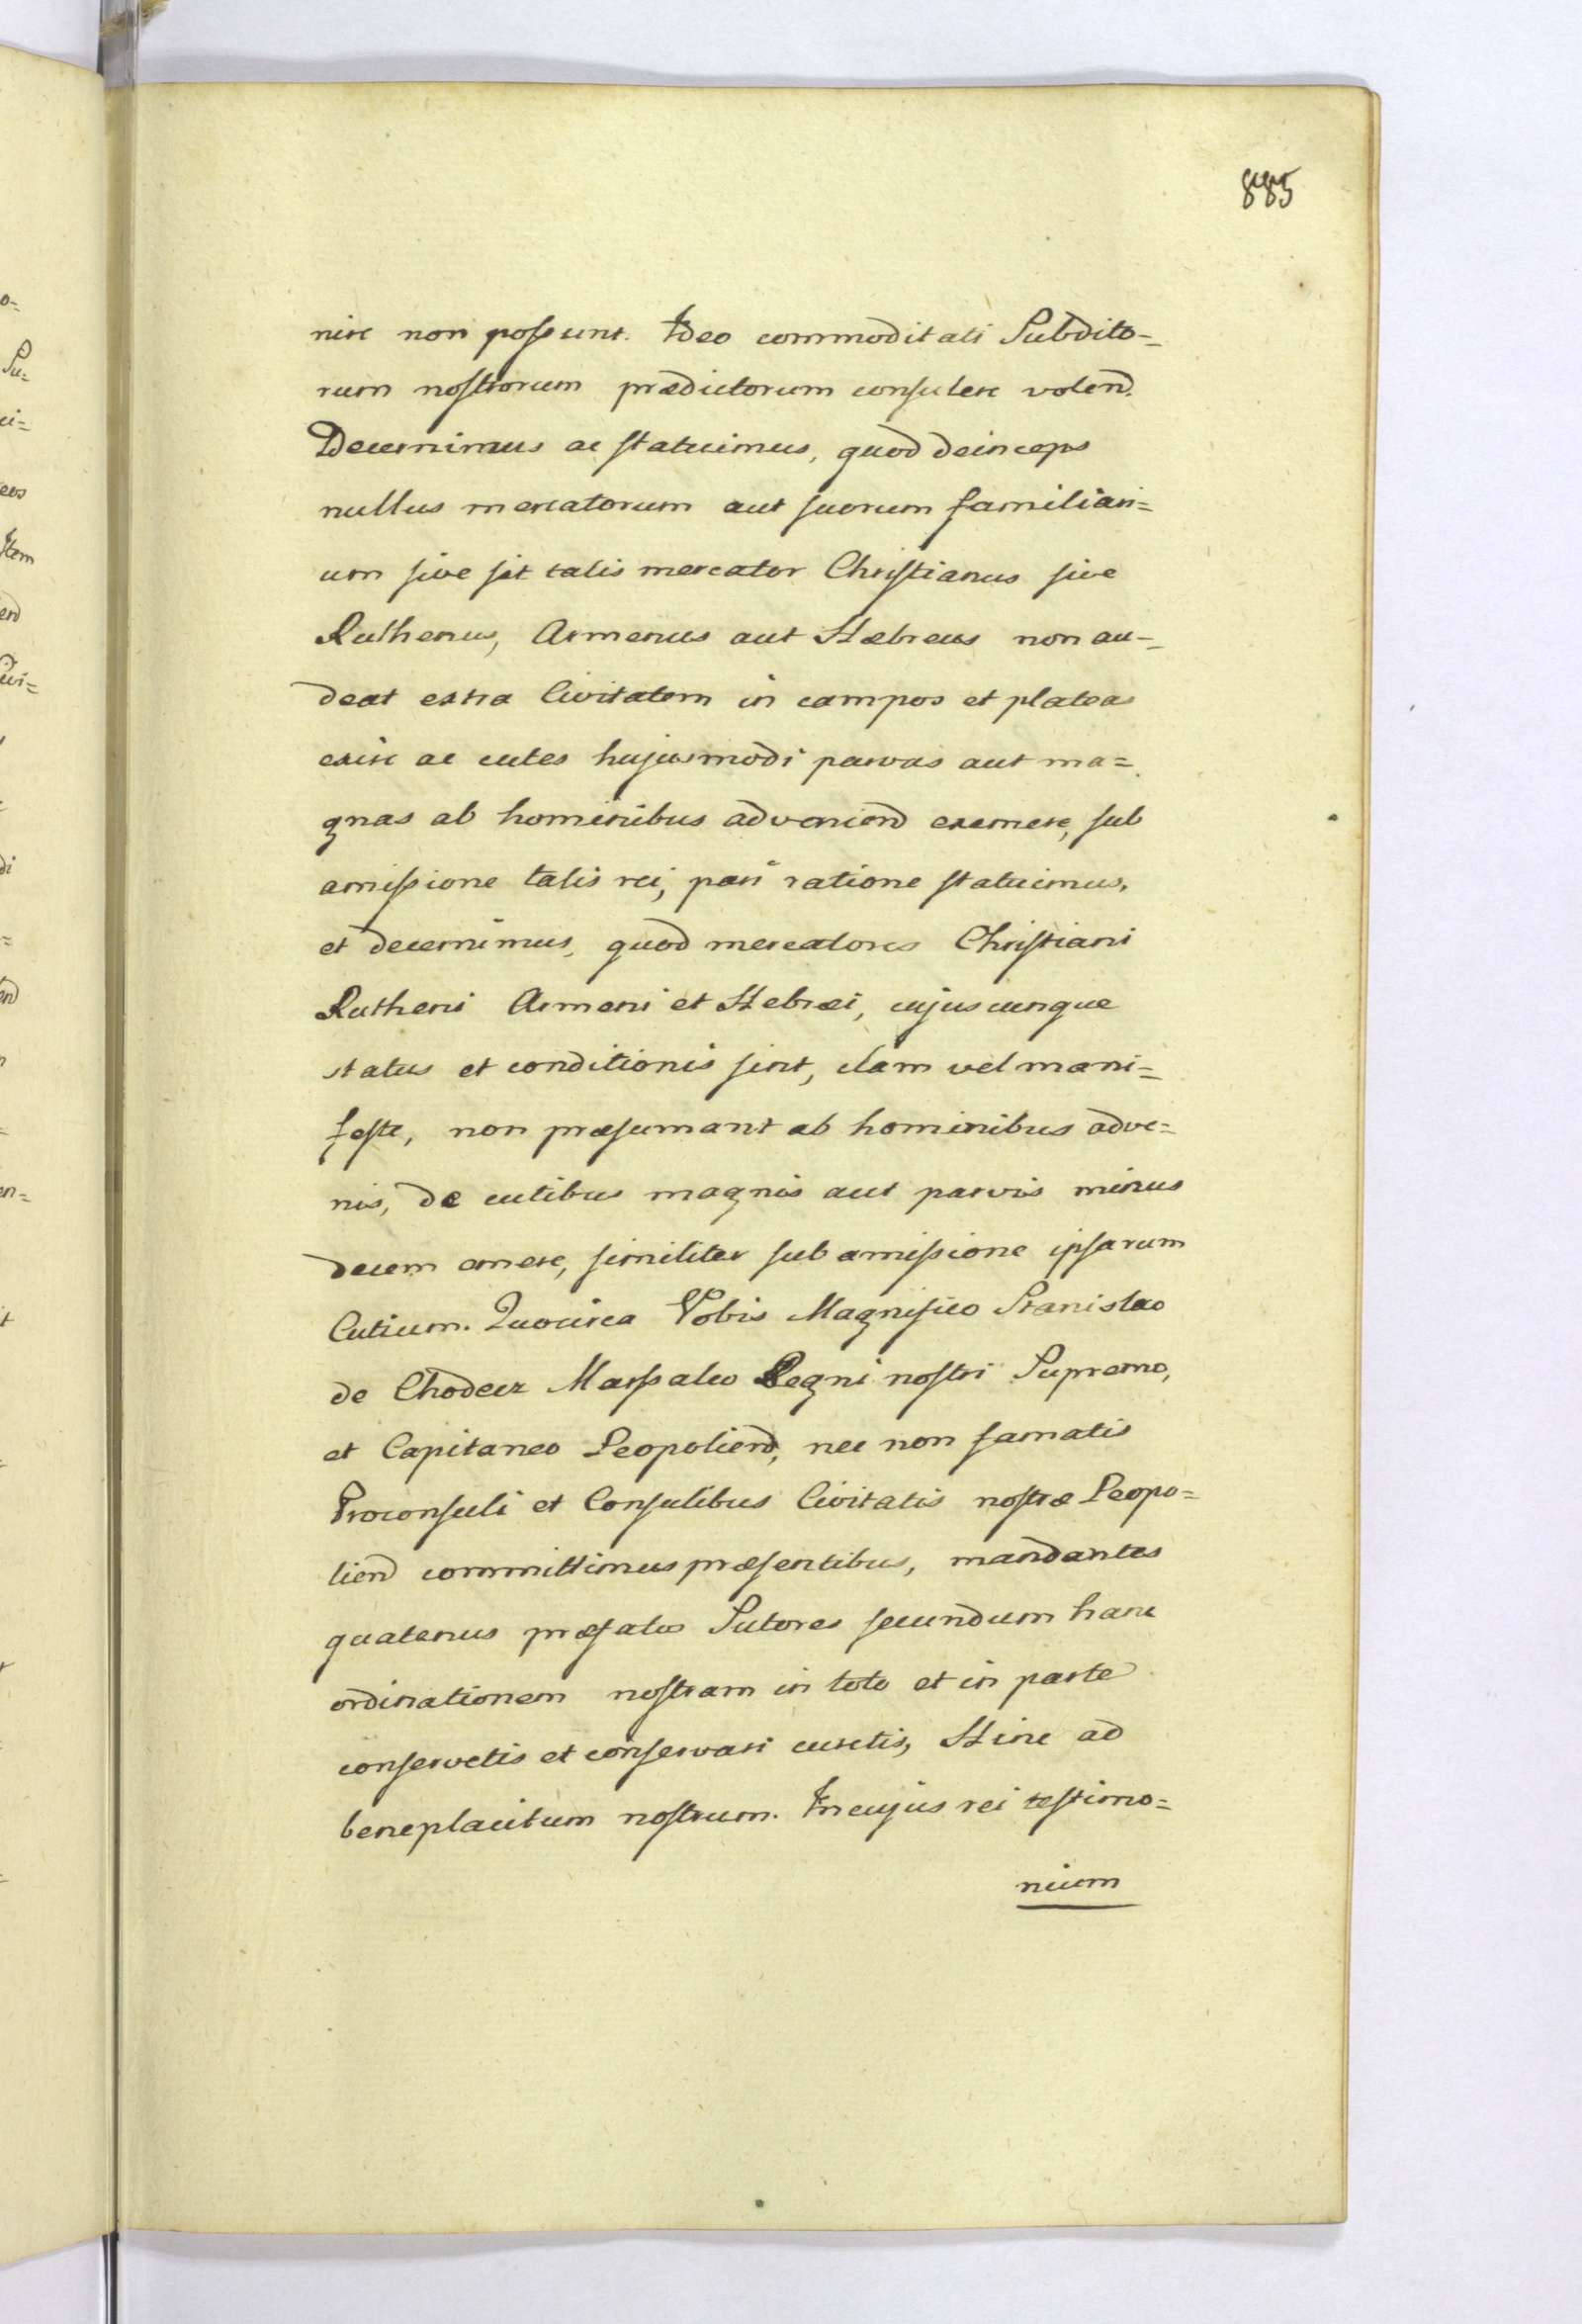 885
nire non possunt. Ideo commoditati Subdito-
rum nostrorum prædictorum consulere volend.
Decernimus ac statuimus, quod deinceps
nullus mercatorum aut suorum familiari=
um sive sit talis mercator Christianus sive
Ruthenus, Armenus aut Hæbreus non au-
deat extra Civitatem in campos et plateas
exire ac cutes hujusmodi parvas aut ma=
gnas ab hominibus adveniend exemere, sub
amissione talis rei, pari ratione statuimus,
et decernimus, quod mercatores Christiani
Rutheni Armeni et Hebræi, cujuscunque
status et conditionis sint, clam vel mani=
feste, non præsumant ab hominibus adve=
nis, de cutibus magnis aut parvis minus
decem emere, similiter sub amissione ipsarum
Cutium. Quocirca Vobis Magnifico Stanislao
de Chodecz Marsalco Regni nostri Supremo,
et Capitaneo Leopoliend, nec non famatis
Proconsuli et Consulibus Civitatis nostræ Leopo=
liend committimus præsentibus, mandantes
quatenus præfatos Sutores secundum hanc
ordinationem nostram in toto et in parte
conservetis et conservari curetis, Hinc ad
beneplacitum nostrum. In cujus rei testimo=
nium
o=
Su=
ci=
eos
Item
end
=
di
=
end
=
en=